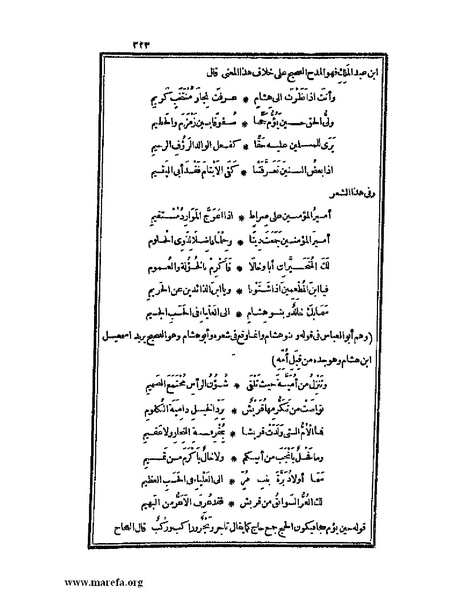 ٣٢٣
ابن عبد الملك فهو المدح الصحيح على خلاف هذا المعنى قال
وأنت اذا نظرت الى هشام * عرفت نجار منتخب كريم
ولى الحق حين يؤم حجا * صفوفا بين زمزم والحطيم
يرى للمسلمين عليه حقا * كفعل الوالد الرؤف الرحيم
اذا بعض السنين تعرقتنا * كفى الايتام فقد أبى اليتيم
وفى هذا الشعر
أمير المؤمنين على صراط * اذا اعوج الموارد مستقيم
أمير المؤمنين جمعت دينا * وحلما فاضلا لذوى الحلوم
لك المتخيرات أبا وخالا * فأكرم بالخؤلة والعموم
فيا ابن المطعمين اذا شتونا * ويا ابن الذائدين عن الحريم
سما بك خالد وبنو هشام * الى العلياء فى الحسب الجسيم
(وهم أبو العباس فى قوله وبنو هشام وانما وقع فى شعره وأبو هشام وهو الصحيح يريد اسمعيل
ابن هشام وهو جده من قبل أمه)
وتنزل من أمية حيث تلقى * شؤن الرأس مجتمع الصميم
تواصت من تكرمها قريش * برد الخيل دامية الكلوم
فما الأم التى ولدت قريشا * بمقرفة النجار ولا عقيم
وما فحل بأنجب من أبيكم * ولا خال بأكرم من تميم
سما أولاد برة بنت مر * الى العلياء فى الحسب العظيم
لك الغر السوابق من قريش * فقد عرف الأغر من البهيم
قوله حين يؤم حجا فيكون الحج جمع حاج كما يقال تاجر وتجر وراكب وركب قال العجاج
www.marefa.org